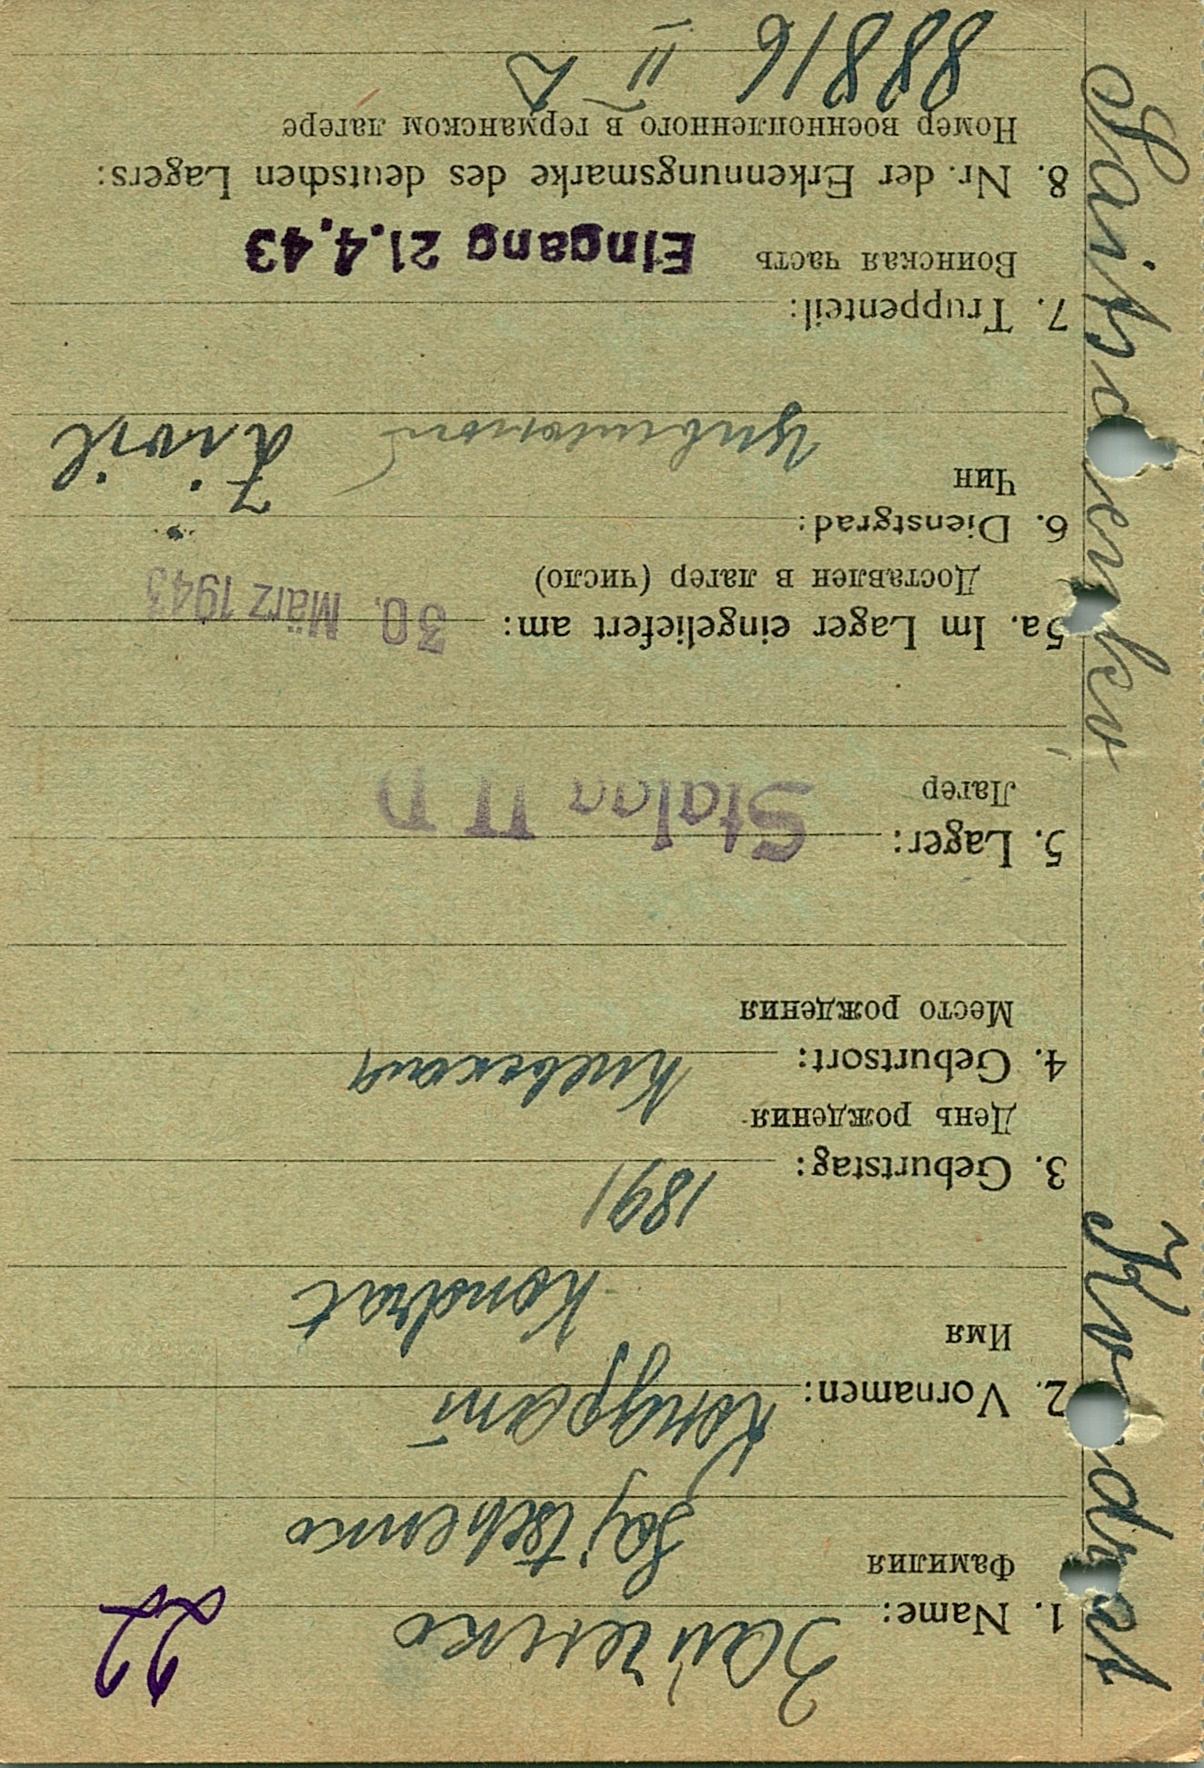 22
1. Name: Зайченко
Фамилия
Sajtschenko
2. Vornamen: Кондрат
Имя
Kondrat
3. Geburtstag: 1891
День рождения
4. Geburtsort: Киевская
Место рождения
5. Lager: Stalag II D
Лагер
5a. Im Lager eingeliefert am: 30. März 1943
Доставлен в лагер (число)
6. Dienstgrad: Zivil
Чин
7. Truppenteil:
Воинская часть Eingang 21.4.43
8. Nr. der Erkennungsmarke des deutschen Lagers:
Номер военнопленного в германском лагере
88816 II D
Saitschenko Kondrat